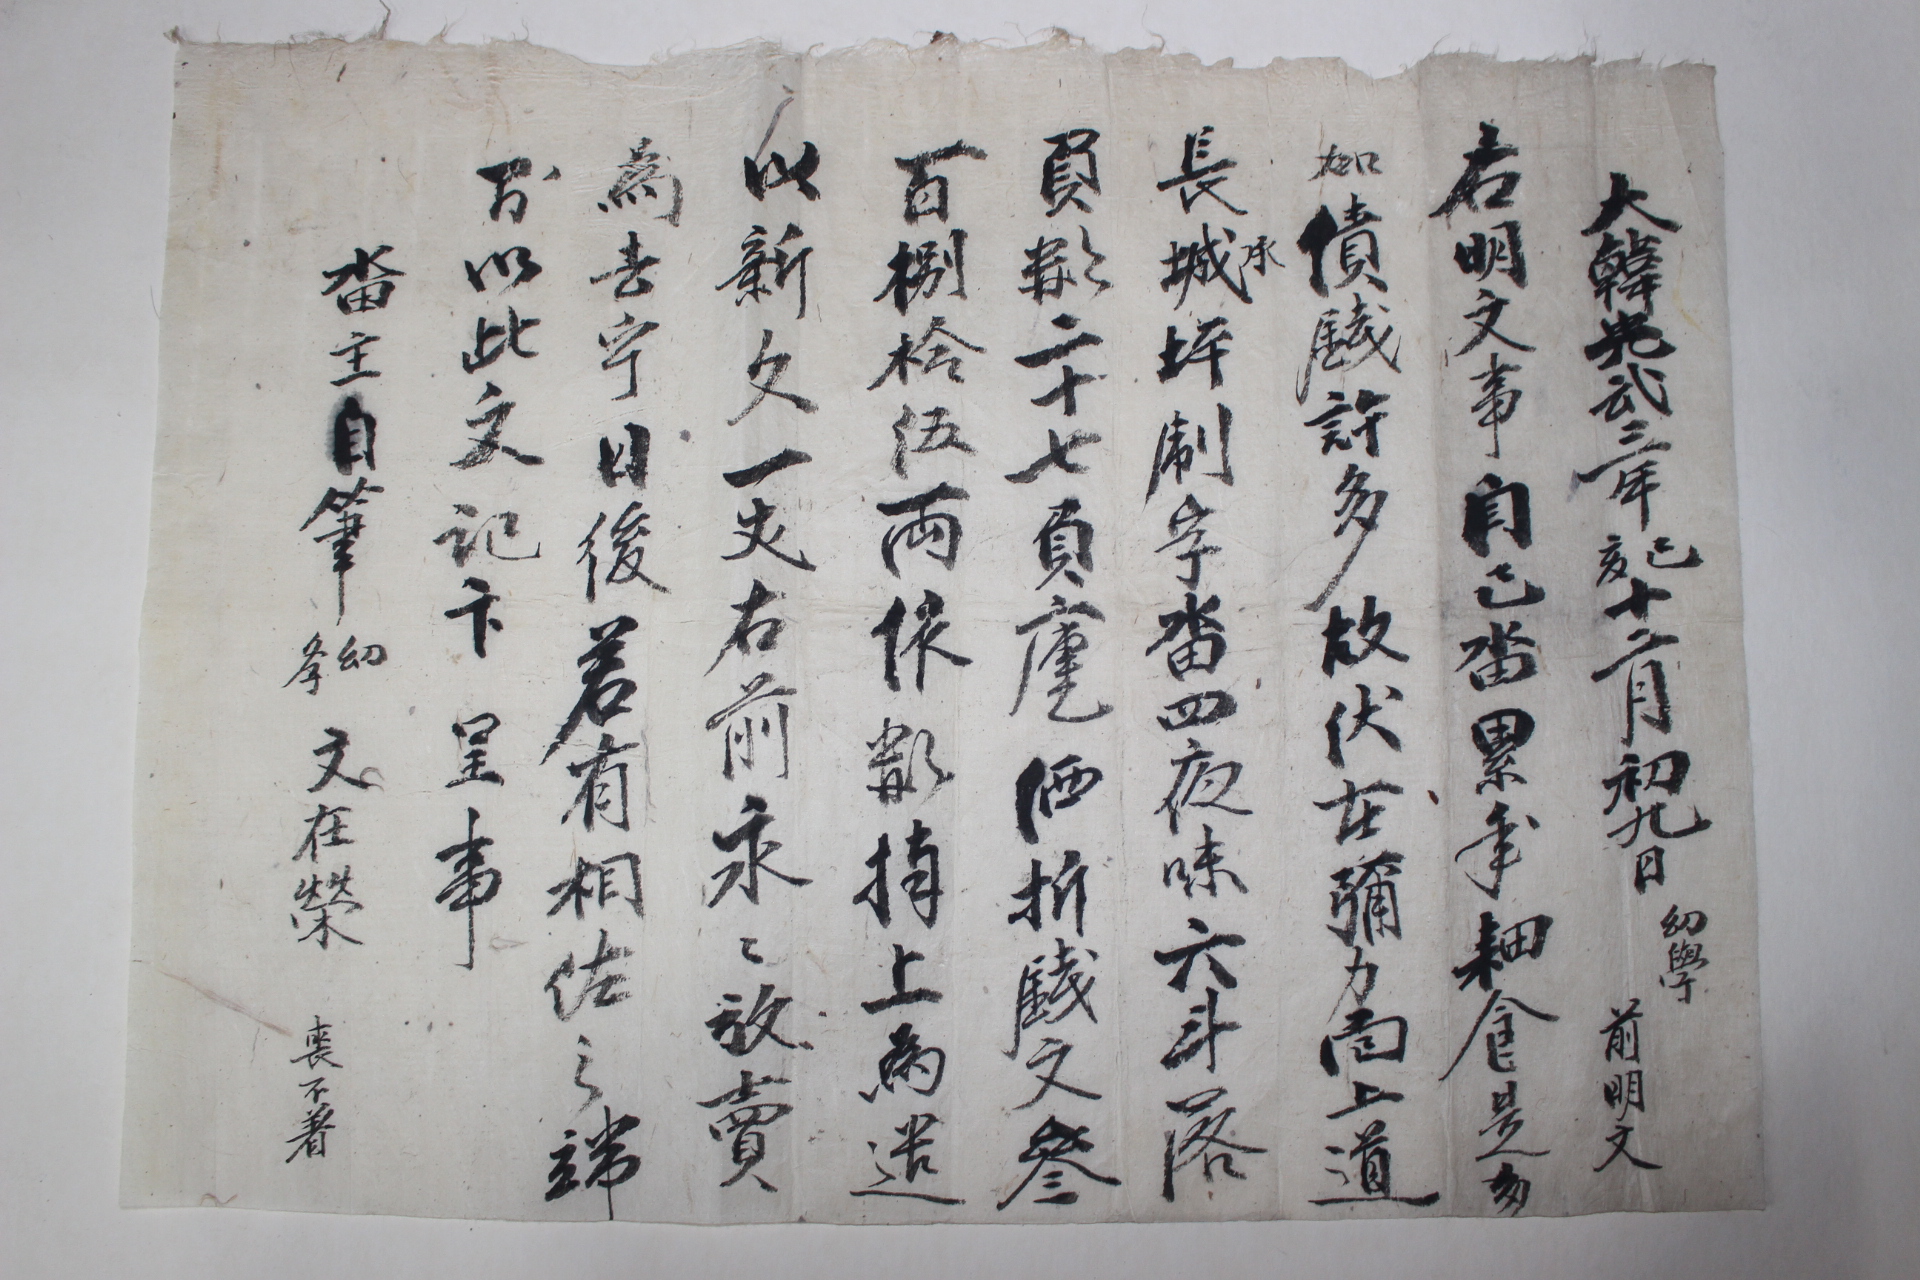 大韓光武三年己亥十二月初九日 幼學 前明文
右明文事自己畓累年耕食是多
如債錢許多故伏在彌力面上道
長城坪承制字畓四夜味六斗落
負數二十七負庫乙 折錢文叄
百捌拾伍兩依數捧上爲遣
以新文一丈右前永〻放賣
爲去乎日後若有相佐之端
則以此文記卞呈事
畓主自筆 幼學 文在榮 喪不着